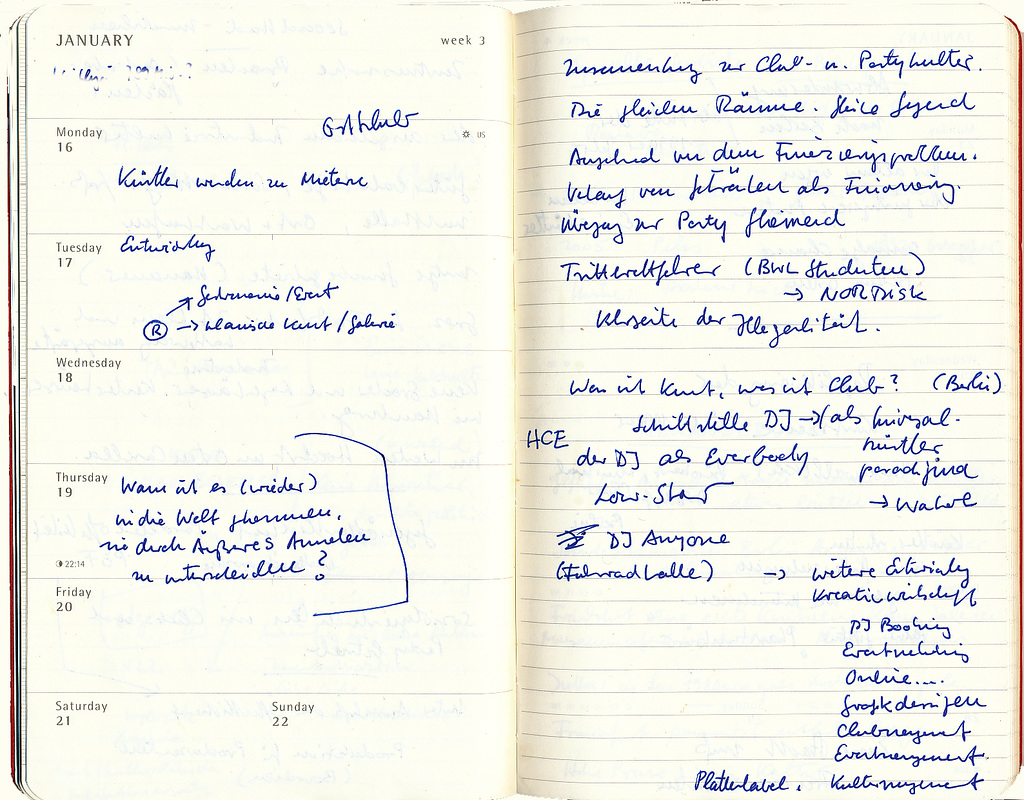 JANUARY
week 3
Monday
16
US
Künstler werden zu Mietern
Tuesday
17
Entwicklung
Gastronomie/Event
R → klassische Kunst/Galerie
Wednesday
18
Thursday
19
Wann ist es (wieder)
in die Welt gekommen,
sie durch Äußeres Anmelen
zu unterscheiden?
22:14
Friday
20
Saturday
21
Sunday
22
Zusammenhang zur Club- u. Partykultur.
Die gleichen Räume. Gleiche Gegend
Angehend von dem Finanzierungsproblem.
Verkauf von Getränken als Finanzierung.
Übergang zur Party fließend
Trittbrettfahrer (BWL Studenten)
→ NORDISK
Kehrseite der Illegalität.
Was ist Kunst, was ist Club? (Berlin)
Schnittstelle DJ → (als Universal-
künstler
HCE
der DJ als Everbody
paradigma
Low-Start
→ Wahre
DJ Anyone
(Fahrradhalle) → weitere Entwicklung
Kreativwirtschaft
DJ Booking
Eventmarketing
Online....
Grafikdesign
Clubmanagement
Eventmanagement
Plattenlabel, Kulturmanagement